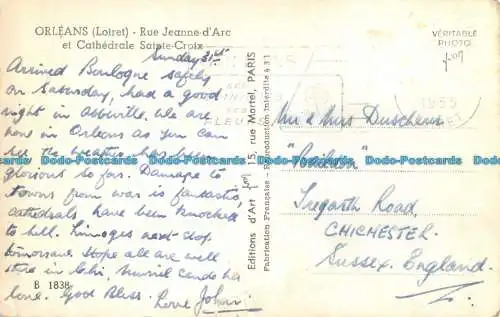 ORLÉANS (Loiret) - Rue Jeanne-d'Arc
et Cathédrale Sainte-Croix
Sunday 31st
Arrived Boulogne safely
on Saturday, had a good
night in Abbeville. We are
now in Orleans as you can
see. The weather has been
glorious so far. Damage to
towns from war is fantastic
cathedrals have been knocked
to hell. Limoges next stop
tomorrow. Hope all are well
there in Chi, Muriel sends her
love. God Bless. Love John
B 1838
Editions d'Art 15, rue Martel, PARIS
Fabrication Française - Reproduction Interdite
VÉRITABLE
PHOTO
1955
Mr & Mrs
Tregarth Road,
CHICHESTER.
Sussex. England.
Dodo-Postcards Dodo-Postcards Dodo-Postcards Dodo-Postcards